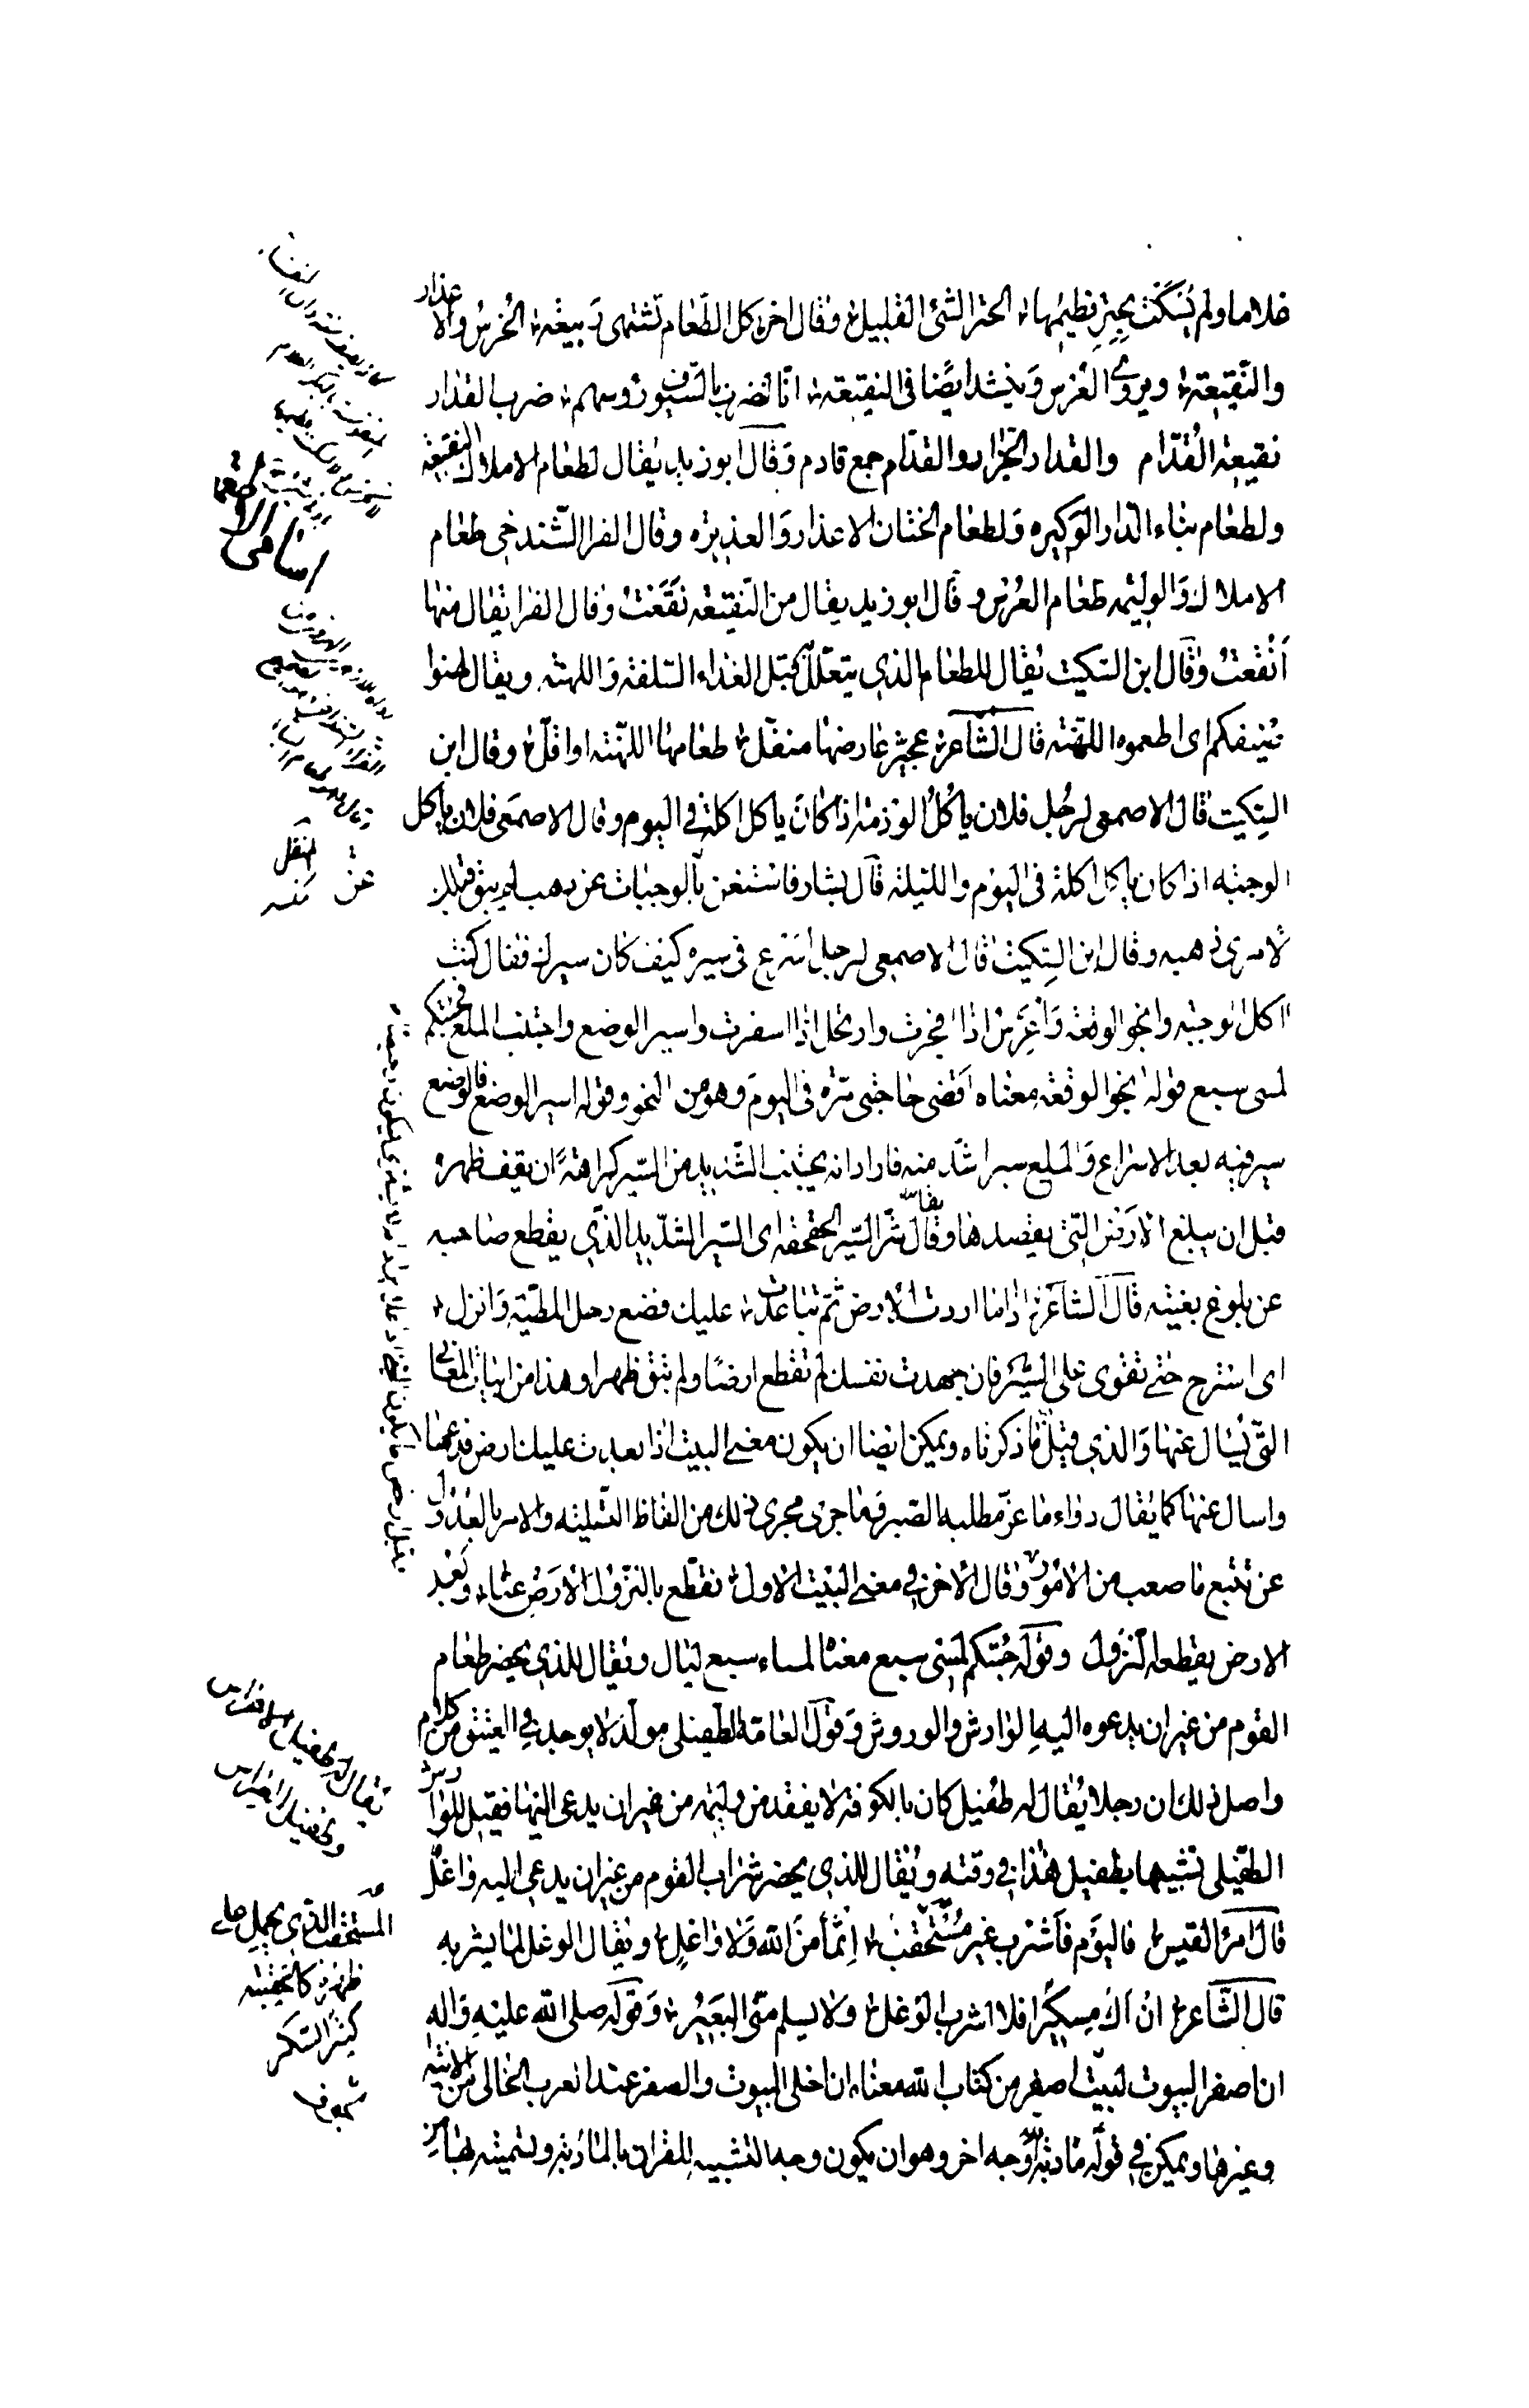 غلاما ولم يُسْكَتْ بحِتْرٍ فطيمُها الحتر الشئ القليل وقال اخر كل الطعام تشتهى ربيعة الخُرس والاعذار
والنقيعة ويروى العُرس وينشد ايضا فى النقيعة انا لنضرب بالسيوف رؤسهم ضرب القدار
نقيعة القُدّام والقدار الجزار والقدّام جمع قادم وقال ابو زيد يقال لطعام الاملاك النقيعة
ولطعام بناء الدار الوكيره ولطعام الختان الاعذار والعذيره وقال الفرا الشندخى طعام
الاملاك والوليمه طعام العُرس وقال ابو زيد يقال من النقيعه نقَعْتُ وقال الفرا يقال منها
أنْقَعتُ وقال ابن السكيت يقال للطعام الذى يتعلل به قبل الغداء السلفة واللهنة ويقال لهنوا
ضيفكم اى اطعموه اللهنة قال الشاعر عجيز عارضها منفلّ طعامها اللهنة او اقلّ وقال ابن
السِكيت قال الاصمعى لرجُل فلان ياكُلُ الوزمة اذا كان ياكل اكلة فى اليوم وقال الاصمعى فلان ياكل
الوجبه اذا كان ياكل اكلة فى اليوم والليلة قال بشار فاستغن بالوجبات عن ذهب لم يبق قبلك
لامرئ ذهبه وقال ابن السِكيت قال الاصمعى لرجل اسرع فى سيره كيف كان سيرك فقال كنت
اكل الوجبه وانجو الوقعة وأعرّس اذا افجرت وارتحل اذا اسفرت واسير الوضع واجتنب الملع فجئتكم
لمسى سبع قوله انجو الوقعة معناه اقضى حاجتى مرّة فى اليوم وهو من النجو وقوله اسير الوضع فالوضع
سير فيه بعد الاسراع والملع سيرا شدّ منه فاراد انه يجتنب الشديد من السير كراهةً ان يقف ظهره
قبل ان يبلغ الارض التى يقصدها وقال يقال شرّ السير الحقحقة اى السير الشديد الذى يقطع صاحبه
عن بلوغ بغيته قال الشاعر اذا ما اردت الارض ثم تباعدت عليك فضع رحل المطية وانزل
اى استرح حتى تقوى على السير فان جهدت نفسك لم تقطع ارضا ولم تبق ظهرا وهذا من ابيات المعانى
التى يُسال عنها والذى قبل ما ذكرناه ويمكن ايضا ان يكون معنى البيت اذا بعدت عليك ارض فدعها
واسال عنها كما يقال دواء ما عزّ مطلبه الصبر وما جرى مجرى ذلك من الفاظ التسلية والامر بالعدول
عن تتبع ما صعب من الامور وقال الاخر فى معنى البيت الاول نقطّع بالنزول الارض عنا وبُعد
الارض يقطعه النزول وقوله جئتكم لمسى سبع معناه لمساء سبع ليال ويقال للذى يحضر طعام
القوم من غير ان يدعوه اليه الوارش والوروش وقول العامة الطفيلى مولّد لا يوجد فى العتيق من كلام
واصل ذلك ان رجلا يُقال له طفيل كان بالكوفة لا يفقد من وليمه من غير ان يدعى اليها فقيل للوارش
الطفيلى تشبيها بطفيل هذا فى وقته ويُقال للذى يحضر شراب القوم من غير ان يدعى اليه واغلٌ
قال امرئ القيس فاليوم فاشرب غير مُسْتَحْقِبٍ إثمًا من الله ولا واغلٍ ويقال الوغل لما يشربه
قال الشاعر ان اك مِسكيرًا فلا اشرب الوغل ولا يسلم منّى البعير وقوله صلى الله عليه واله
ان اصفر البيوت لبيت اصفر من كتاب الله معناه ان اخلى البيوت والصفر عند العرب الخالى من الآنية
وغيرها ويمكن فى قوله مادبة وجه اخر وهو ان يكون وجه التشبيه للقران بالمادبة وتسميته بها من
اسامى الاطعمة
المستحقب الذى يحمل على
ظهره كالحقيبة
كثير السكر